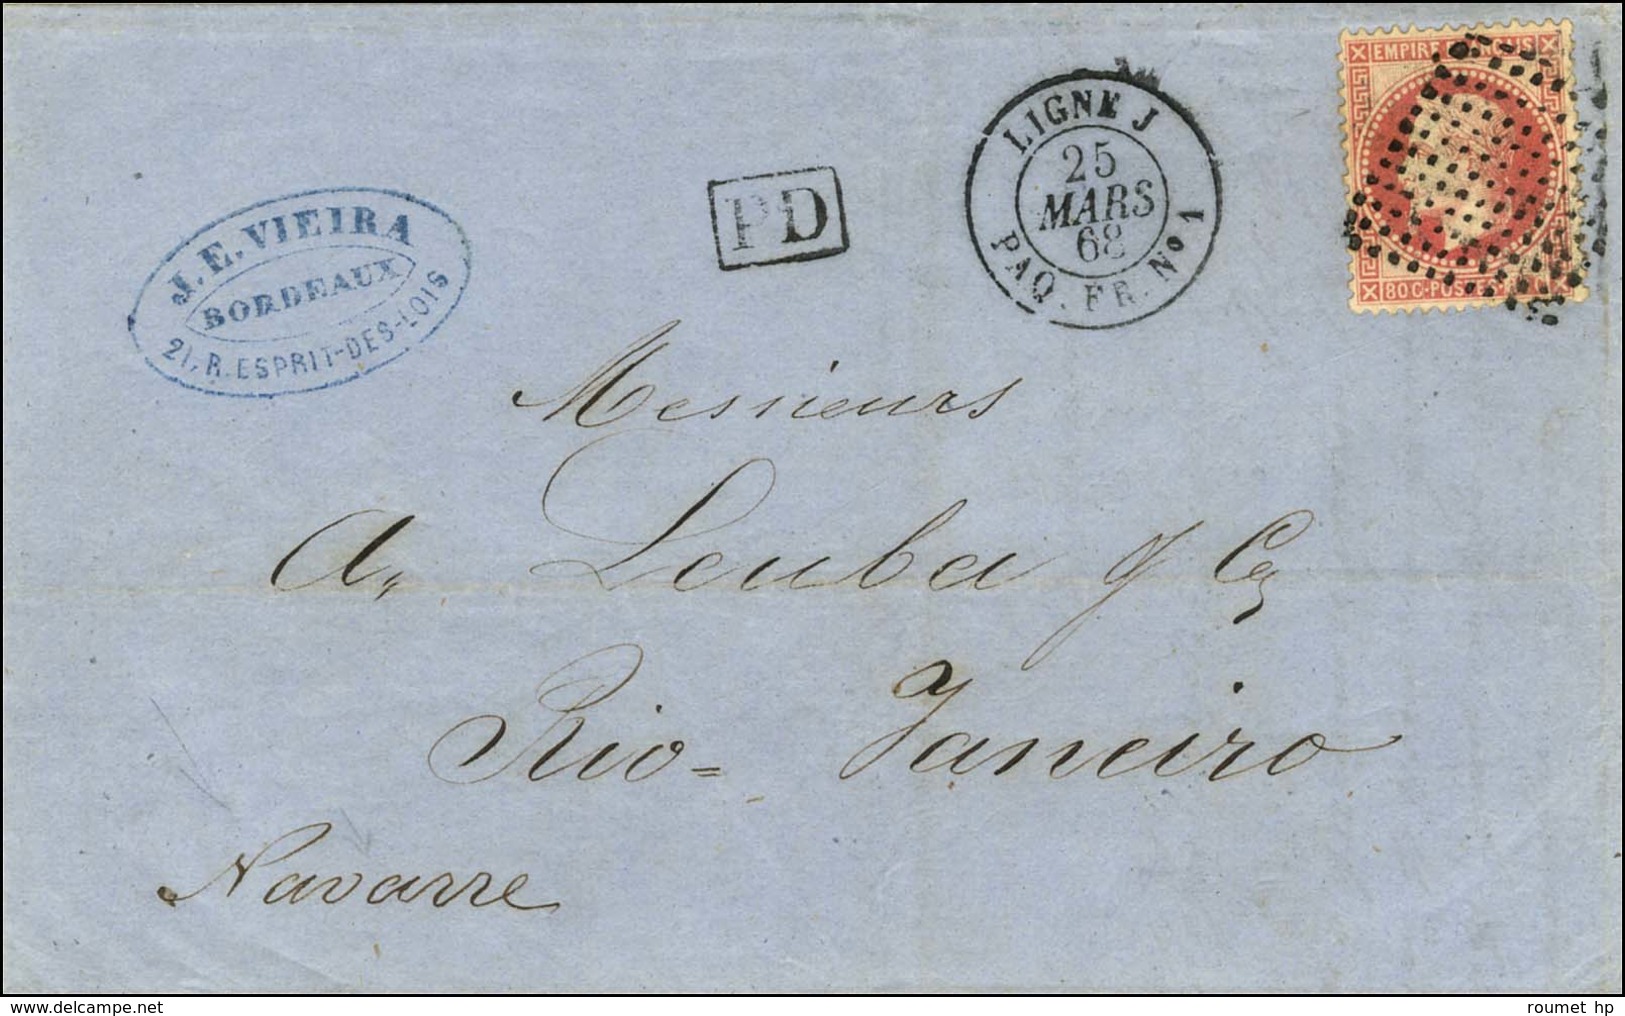 J. E. VIEIRA
BORDEAUX
21, R. ESPRIT-DES-LOIS
PD
LIGNE J
25
MARS
68
PAQ. FR. No 1
EMPIRE
80 C
Messieurs
A. Leuba & Co
Rio-Janeiro
Navarre
www.delcampe.net
roumet hp